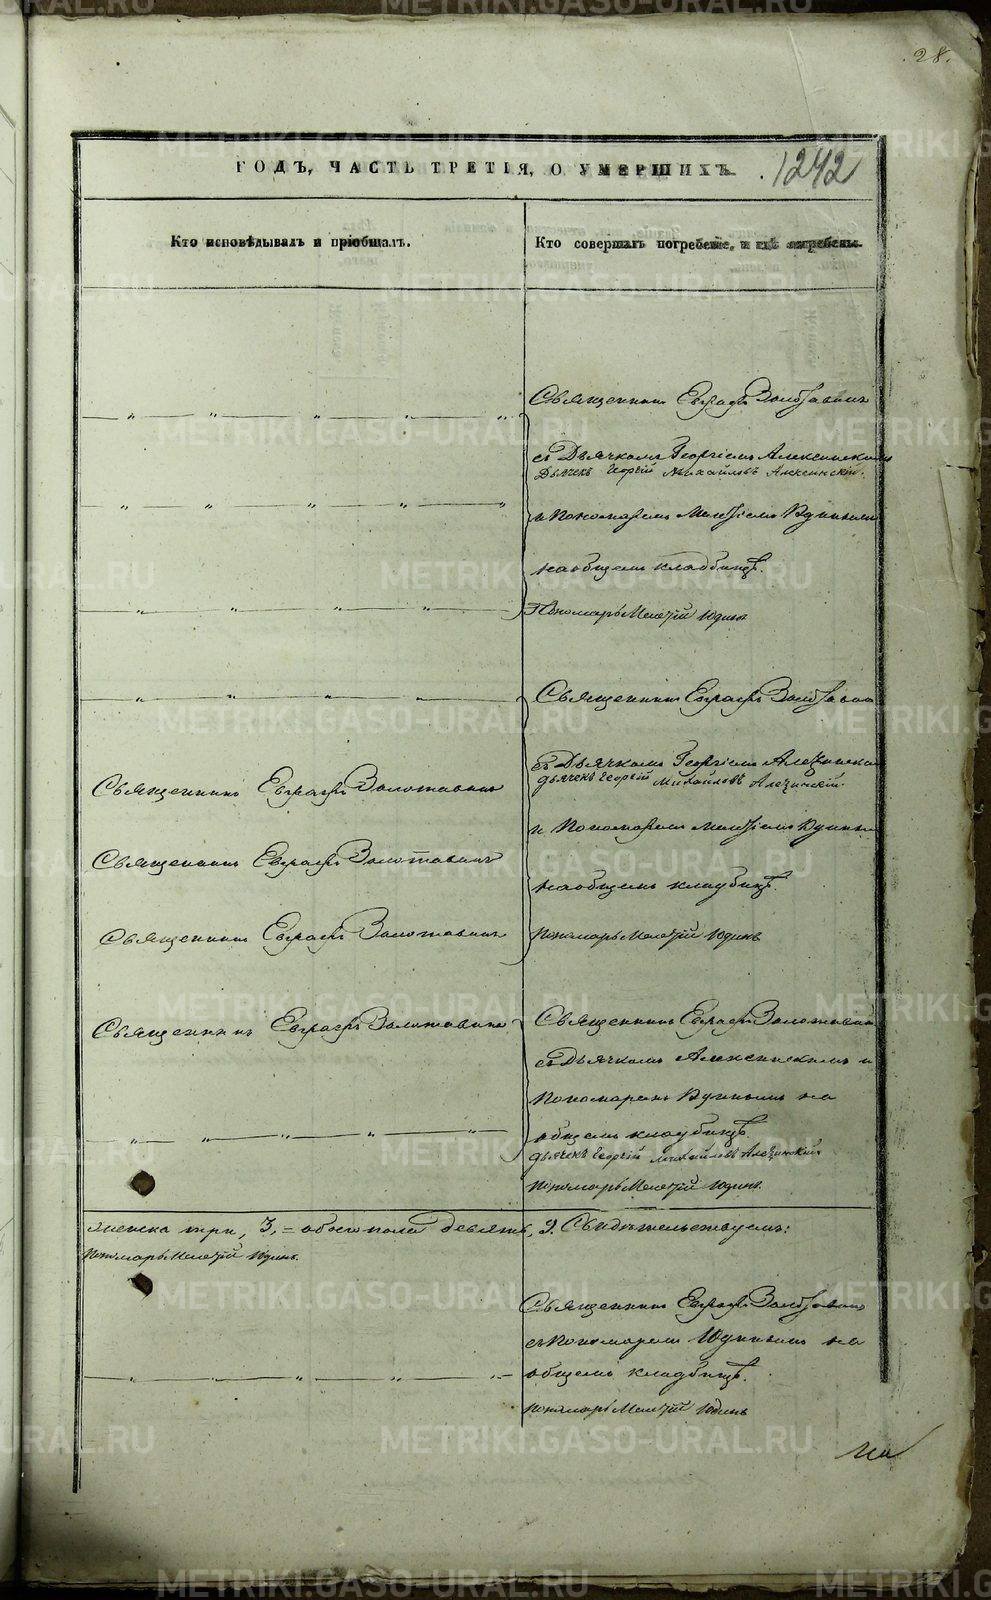 28.
ГОДЪ, ЧАСТЬ ТРЕТІЯ, О УМЕРШИХЪ.
1242
Кто исповѣдывалъ и пріобщалъ.
Кто совершалъ погребеніе, и гдѣ погребены.
Священникъ Евграфъ Золотавинъ
съ Дьячкомъ Георгіемъ Алексинскимъ
Дьячекъ Георгій Михайловъ Алексинскій.
и Пономаремъ Мелетіемъ Юдинымъ
на общемъ кладбищѣ.
Пономарь Мелетій Юдинъ
Священникъ Евграфъ Золотавинъ
съ Дьячкомъ Георгіемъ
дьячекъ Георгій Михайловъ
и Пономаремъ Мелетіемъ
на общемъ кладбищѣ.
Пономарь Мелетій Юдинъ
Священникъ Евграфъ Золотавинъ
Священникъ Евграфъ Золотавинъ
Священникъ Евграфъ Золотавинъ
Священникъ Евграфъ Золотавинъ
Священникъ Евграфъ Золотавинъ
съ Дьячкомъ Алексинскимъ и
Пономаремъ Юдинымъ на
общемъ кладбищѣ.
дьячекъ Георгій Михайловъ
Пономарь Мелетій Юдинъ.
женска три, 3, = обоего пола девять, 9. Свидѣтельствуемъ:
Пономарь Мелетій Юдинъ.
Священникъ Евграфъ Золотавинъ
съ Пономаремъ Юдинымъ на
общемъ кладбищѣ.
Пономарь Мелетій Юдинъ
METRIKI.GASO-URAL.RU